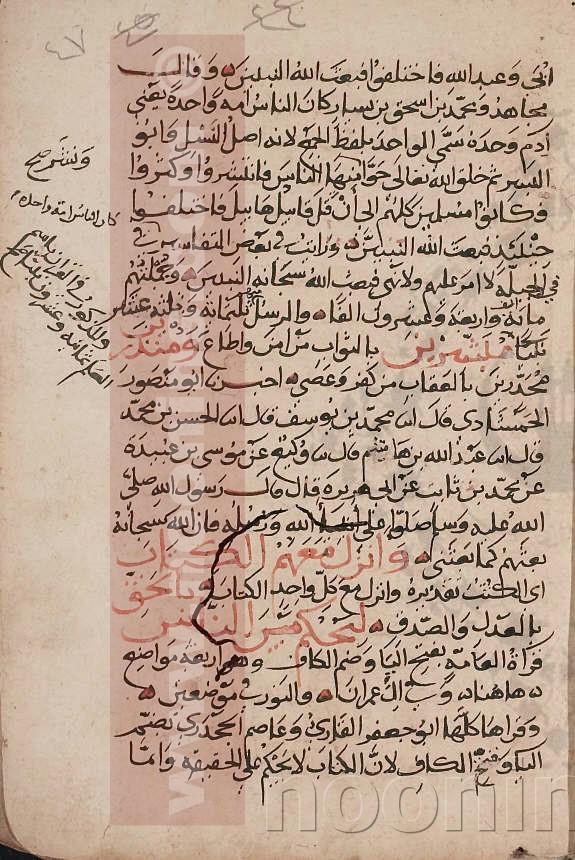 ٤٧
ابي وعبد الله فاختلفوا فبعث الله النبيين وقال
مجاهد ومحمد بن اسحق بن يسار كان الناس امة واحدة يعني
آدم وحده سمى الواحد بلفظ الجمع لانه اصل النسل وابو
البشر ثم خلق الله تعالى حوا ونشر منها الناس فانتشروا وكثروا
وكانوا مسلمين كلهم الى أن قتل قابيل هابيل فاختلفوا
حينئذ فبعث الله النبيين ورايت في بعض التفاسير
لا امر عليهم ولا نهي فبعث الله سبحانه النبيين وجملتهم
مائة الف واربعة وعشرون الفا والرسل منهم ثلثمائة وثلثة عشر
مبشرين بالثواب من امن واطاع ومنذرين
محذرين بالعقاب من كفر وعصى اخبرنا ابو منصور
الحمشادي قال انا محمد بن يوسف قال انا الحسن بن محمد
قال انا عبد الله بن هاشم قال انا وكيع عن موسى بن عبيدة
عن محمد بن ثابت عن ابي هريرة قال قال رسول الله صلى
الله عليه وسلم صلوا على انبيا الله ورسله فان الله سبحانه
بعثهم كما بعثني وانزل معهم الكتاب
اى الكتب تقديره وانزل مع كل واحد الكتاب بالحق
بالعدل والصدق ليحكم بين الناس
قراة العامة بفتح اليا وضم الكاف وهو اربعة مواضع
هاهنا وفي ال عمران والنور في موضعين
وقراها كلها ابو جعفر القاري وعاصم الجحدري بضم
اليا وفتح الكاف لان الكتاب لا يحكم على الحقيقة وانما
كان الناس امة واحدة
والمذكور في القران باسم
العلم ثمانية وعشرون
noonin